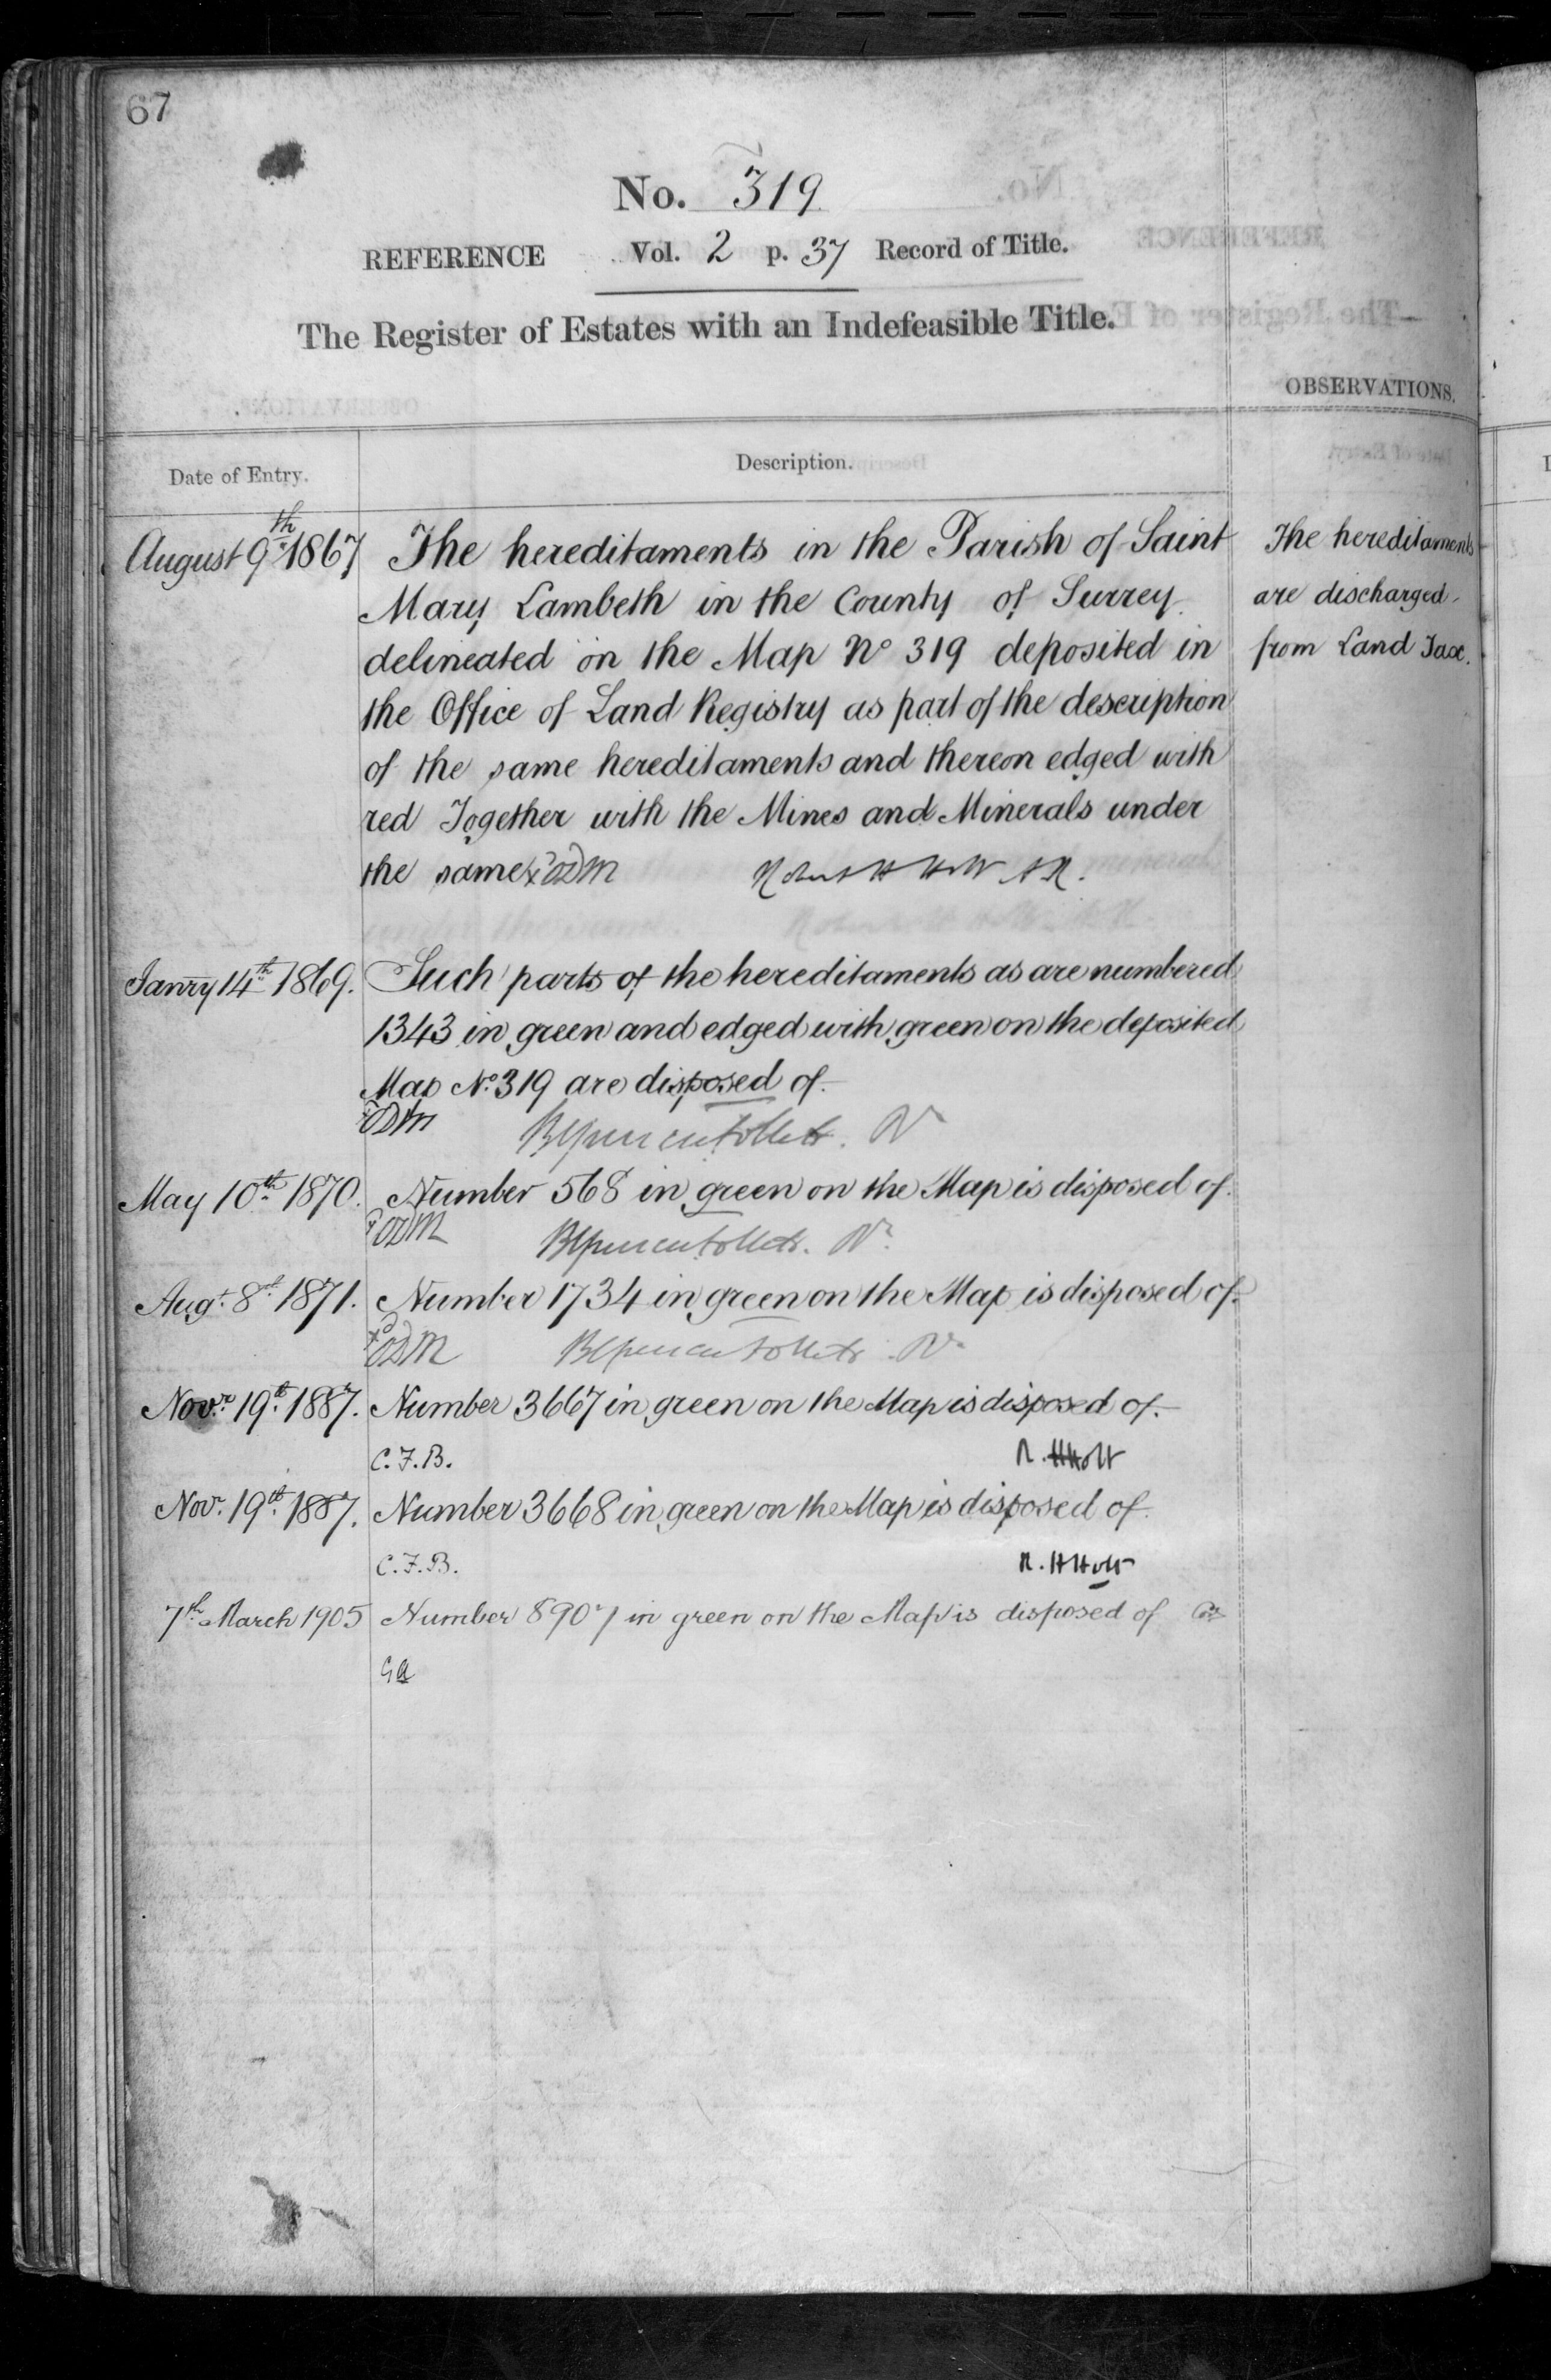 67
No. 319
REFERENCE Vol. 2 p. 37 Record of Title.
The Register of Estates with an Indefeasible Title.
OBSERVATIONS.
Date of Entry.
Description.
August 9th 1867 The hereditaments in the Parish of Saint
Mary Lambeth in the County of Surrey
delineated on the Map No 319 deposited in
the Office of Land Registry as part of the description
of the same hereditaments and thereon edged with
red Together with the Mines and Minerals under
the same Robert H Holt A.R.
The hereditaments
are discharged
from Land Tax.
Janry 14th 1869. Such parts of the hereditaments as are numbered
1343 in green and edged with green on the deposited
Map No. 319 are disposed of.
May 10th 1870. Number 568 in green on the Map is disposed of.
Augt. 8th 1871. Number 1734 in green on the Map is disposed of.
Novr. 19th 1887. Number 3667 in green on the Map is disposed of.
C.F.B. R.H Holt
Novr. 19th 1887. Number 3668 in green on the Map is disposed of.
C.F.B. R.H Holt
7th March 1905 Number 8907 in green on the Map is disposed of